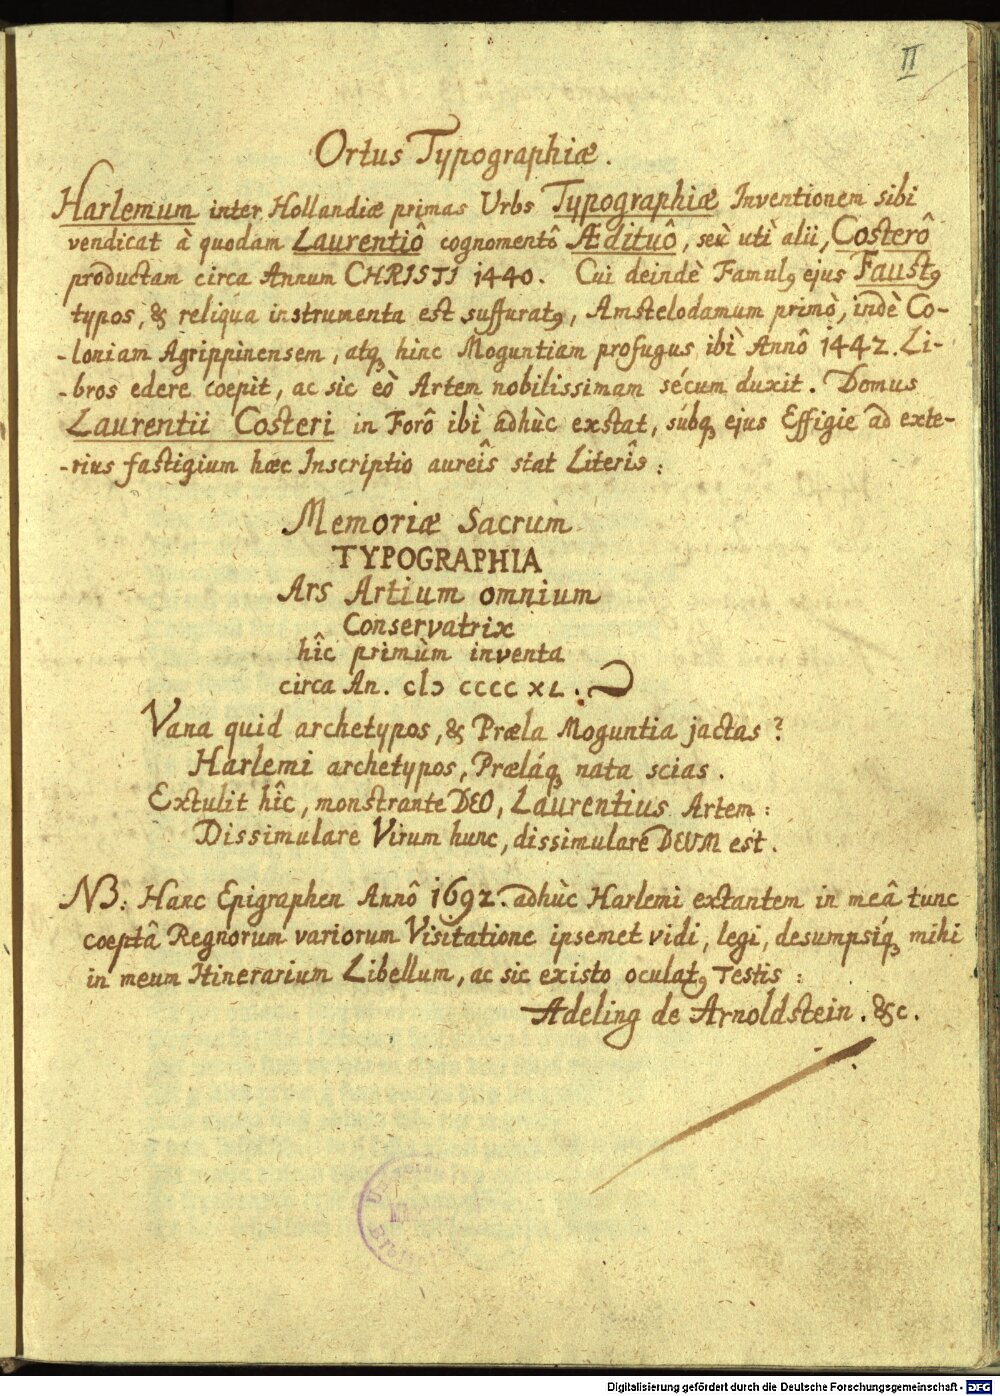 II
Ortus Typographiæ.
Harlemum inter Hollandiæ primas Urbs Typographiæ Inventionem sibi
vendicat à quodam Laurentiô cognomentô Ædituô, seù utì alii, Costerô
productam circa Annum CHRISTI 1440. Cui deindè Famulꝰ ejus Faustꝰ
typos, & reliqua instrumenta est suffuratꝰ, Amstelodamum primò, indè Co-
-loniam Agrippinensem, atqꝫ hinc Moguntiam profugus ibì Annô 1442. Li-
-bros edere coepit, ac sic eò Artem nobilissimam sécum duxit. Domus
Laurentii Costeri in Forô ibì adhùc exstat, súbqꝫ ejus Effigie ad exte-
-rius fastigium hæc Inscriptio aureîs stat Literîs:
Memoriæ Sacrum
TYPOGRAPHIA
Ars Artium omnium
Conservatrix
hîc primùm inventa
circa An. cIↄ cccc XL.
Vana quid archetypos, & Præla Moguntia jactas?
Harlemi archetypos, Præláqꝫ nata scias.
Extulit hîc, monstrante DEO, Laurentius Artem:
Dissimulare Virum hunc, dissimulare DEUM est.
NB: Hanc Epigraphen Annô 1692. adhùc Harlemi extantem in meâ tunc
coeptâ Regnorum variorum Visitatione ipsemet vidi, legi, desumpsíqꝫ mihi
in meum Itinerarium Libellum, ac sic existo oculatꝰ Testis:
Adeling de Arnoldstein. &c.
Digitalisierung gefördert durch die Deutsche Forschungsgemeinschaft - DFG